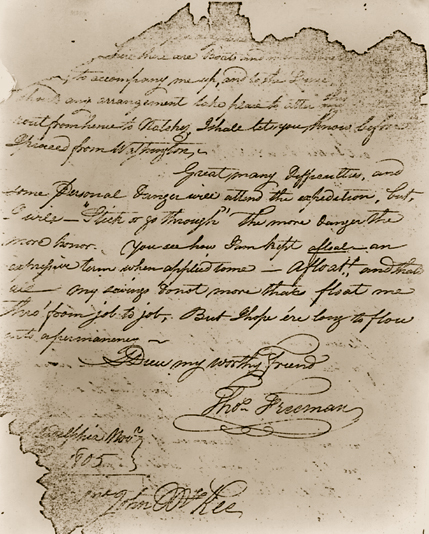 there are Boats and
to accompany me up, and to the
any arrangement take place to alter
rout from hence to Natchez, I shall let you know before
I proceed from W. Shington,
Great many Difficulties, and
some Personal danger will attend the expedition, but,
I will — "Stick or go through" the more danger the
more honor. You see how I am kept afloat — an
expressive term when applied to me — Afloat, and that
all — my savings do not more than float me
thro' from job to job. But I hope ere long to flow
into a permanency —
Adieu my worthy friend
Thos. Freeman
Novr
1805
John McKee